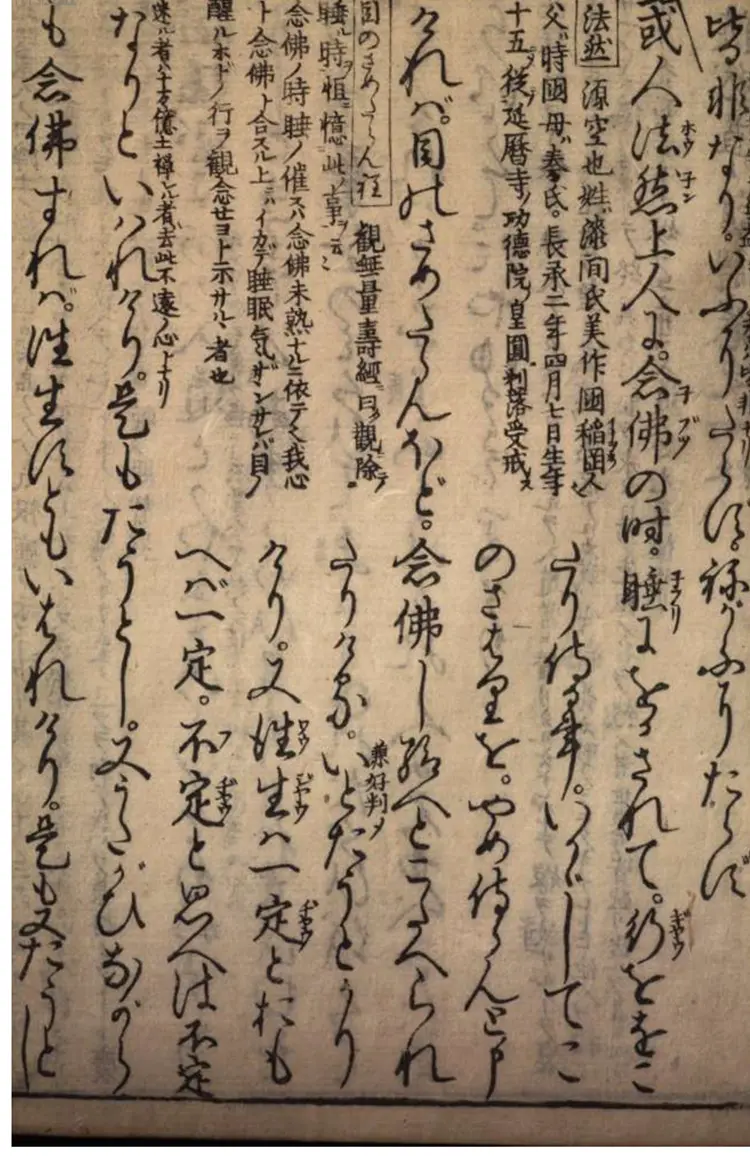 皆非なり。いふにたらず。ねがふにたらず
或人法然上人に。念佛の時。睡にをかされて。行ををこ
法然 源空也姓ハ漆間氏美作國稲岡人
父ハ時國母ハ秦氏。長承二年四月七日生年
十五ニテ従延暦寺ノ功徳院ノ皇圓剃落受戒ス
たり侍る事。いかゞしてこ
のさはりを。やめ侍らんと申
ければ。目のさめたらんほど。念佛し給へとこたへられ
目のさめたらん程 觀無量壽經ニ曰ク觀除テ
睡ル時ヲ恒ニ憶此ノ事ヲ云々
念佛ノ時睡ノ催スハ念佛未熟ナルニ依テ之我心
ト念佛ト合スル上ニハイカデ睡眠気ザンサレバ目ノ
醒ルホドノ行ヲ観念セヨト示サルヽ者也
たりける。いとたうとかり
兼好判メ
けり。又往生は一定とおも
へば一定。不定と思へは不定
迷ル者ハ十万億土 者ハ去此不遠ノ心ヨリ
なりといはれけり。是もたうとし。又うたがひながら
も念佛すれば。往生すともいはれけり。是も又たうとし